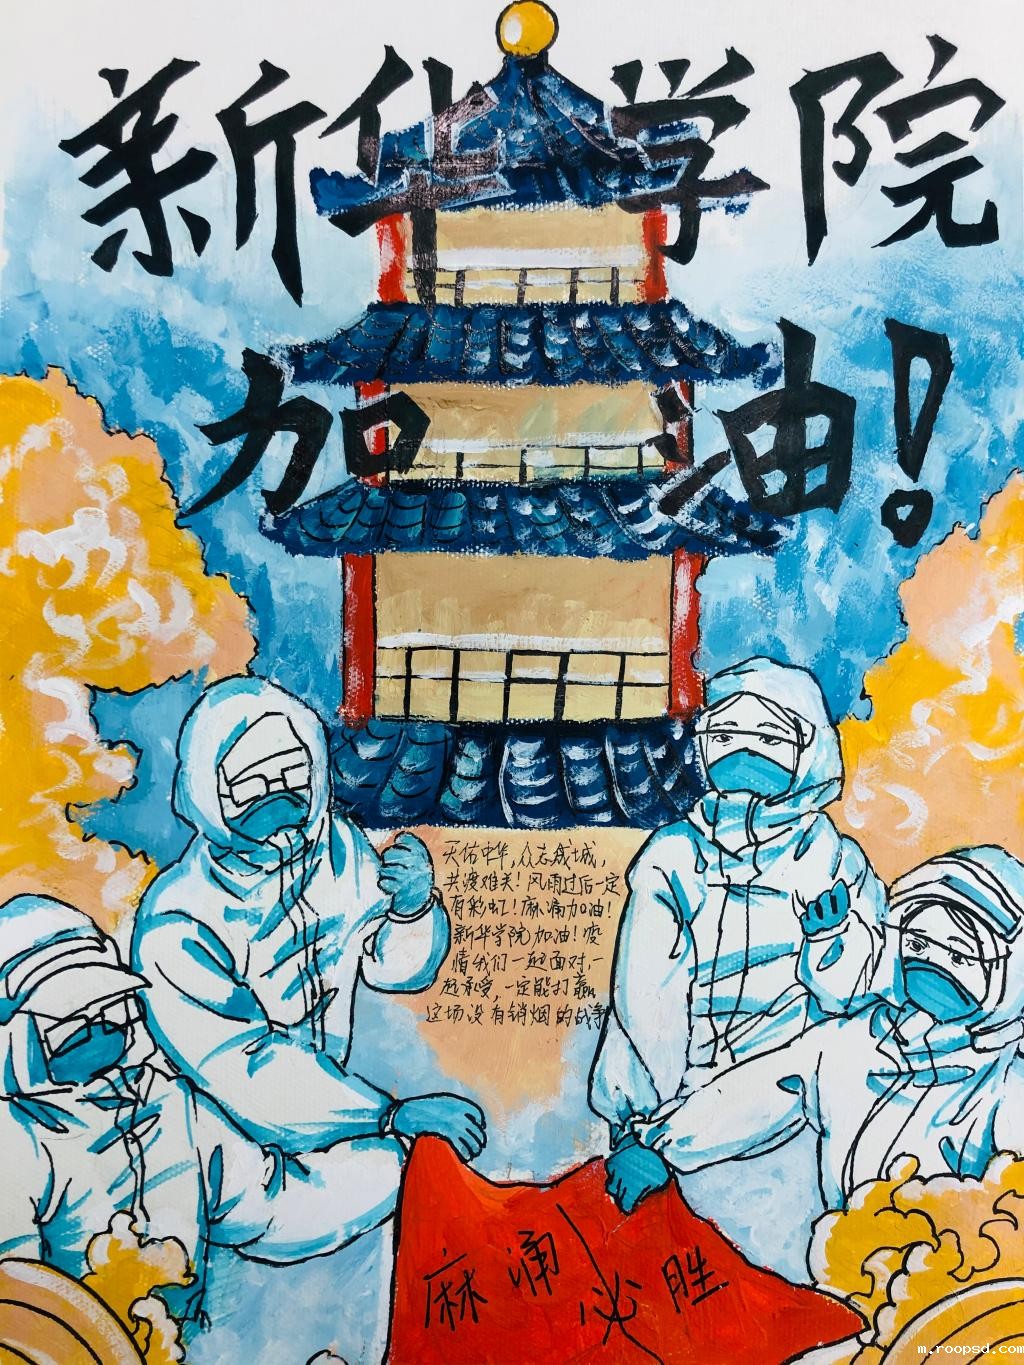 新华学院
加油！
天佑中华，众志成城，
共渡难关！风雨过后一定
有彩虹！麻涌加油！
新华学院加油！疫
情我们一起面对，一
起承受，一定能打赢
这场没有销烟的战争
麻涌必胜
m.roopsd.com